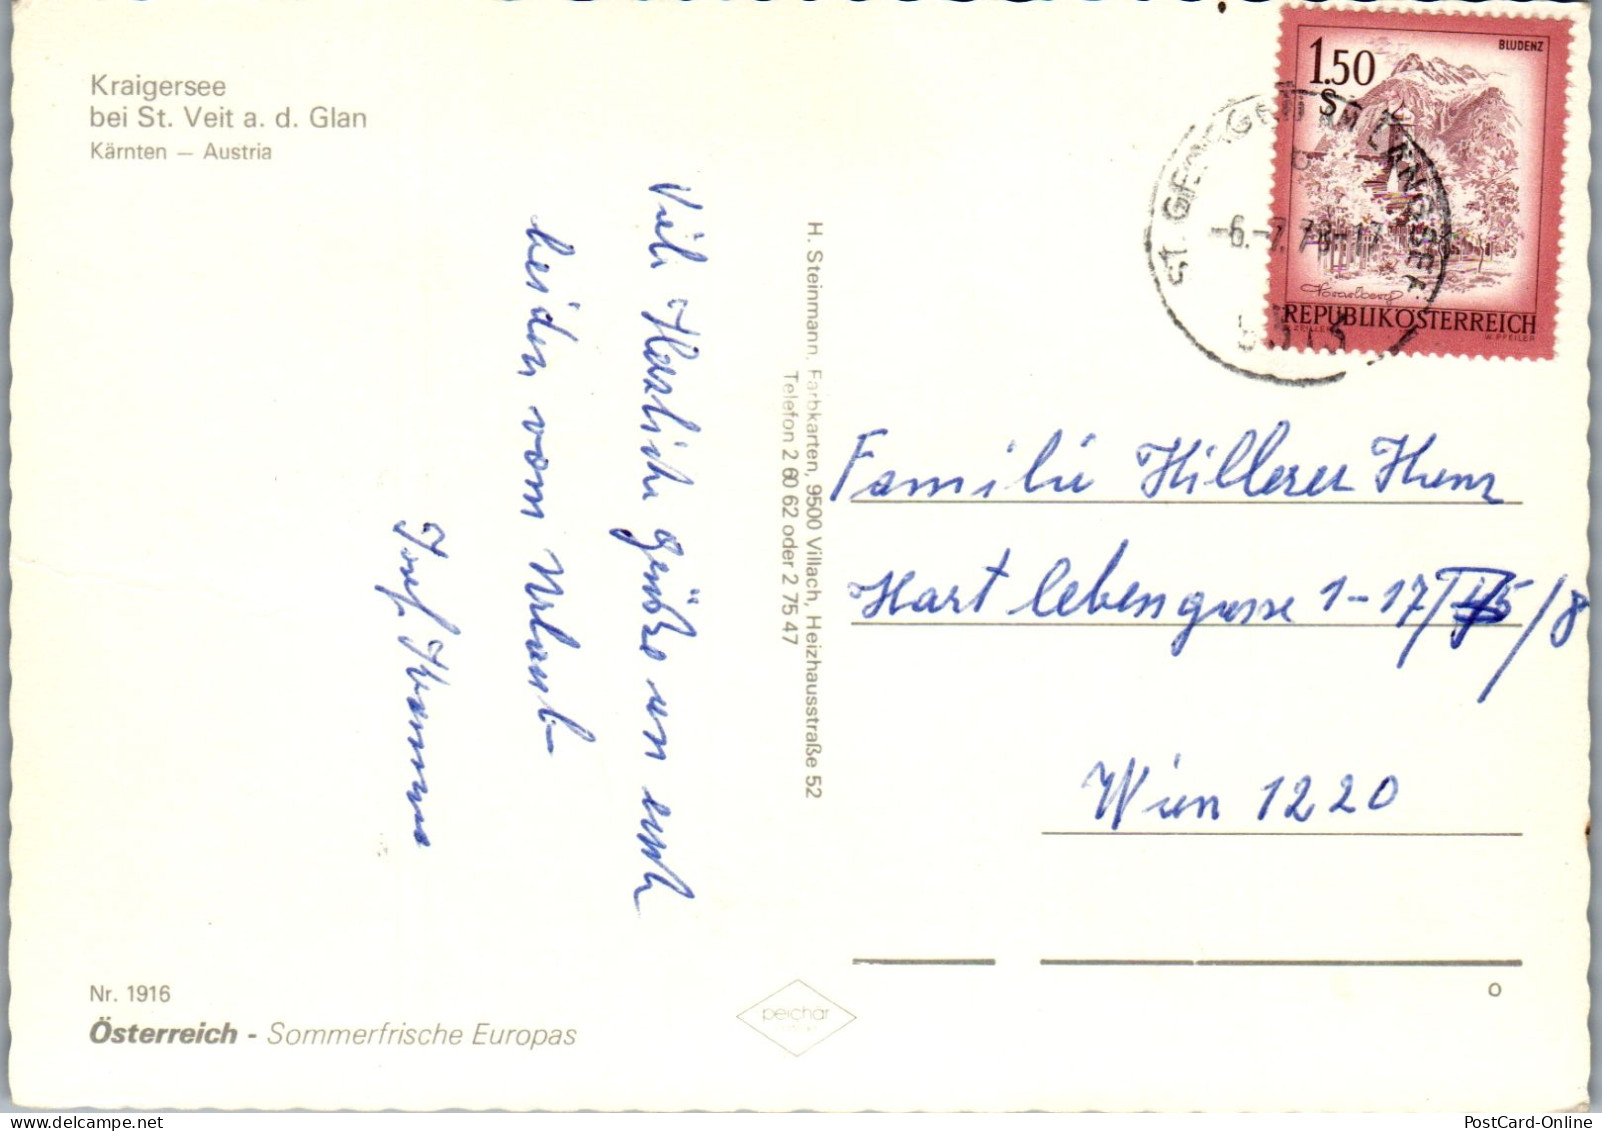 Kraigersee
bei St. Veit a. d. Glan
Kärnten — Austria
Viele Herzliche Grüße an euch
beiden vom Urlaub
Josef
H. Steinmann, Farbkarten, 9500 Villach, Heizhausstraße 52
Telefon 2 60 62 oder 2 75 47
1.50
S
BLUDENZ
Vorarlberg
REPUBLIK ÖSTERREICH
A. PFEILER
ST. GEORGEN AM LÄNGSEE
-6.-7.78-17
Familie Hillerer Herr
Hartlebengasse 1-17/ /8
Wien 1220
Nr. 1916
Österreich - Sommerfrische Europas
peichär
PostCard-Online